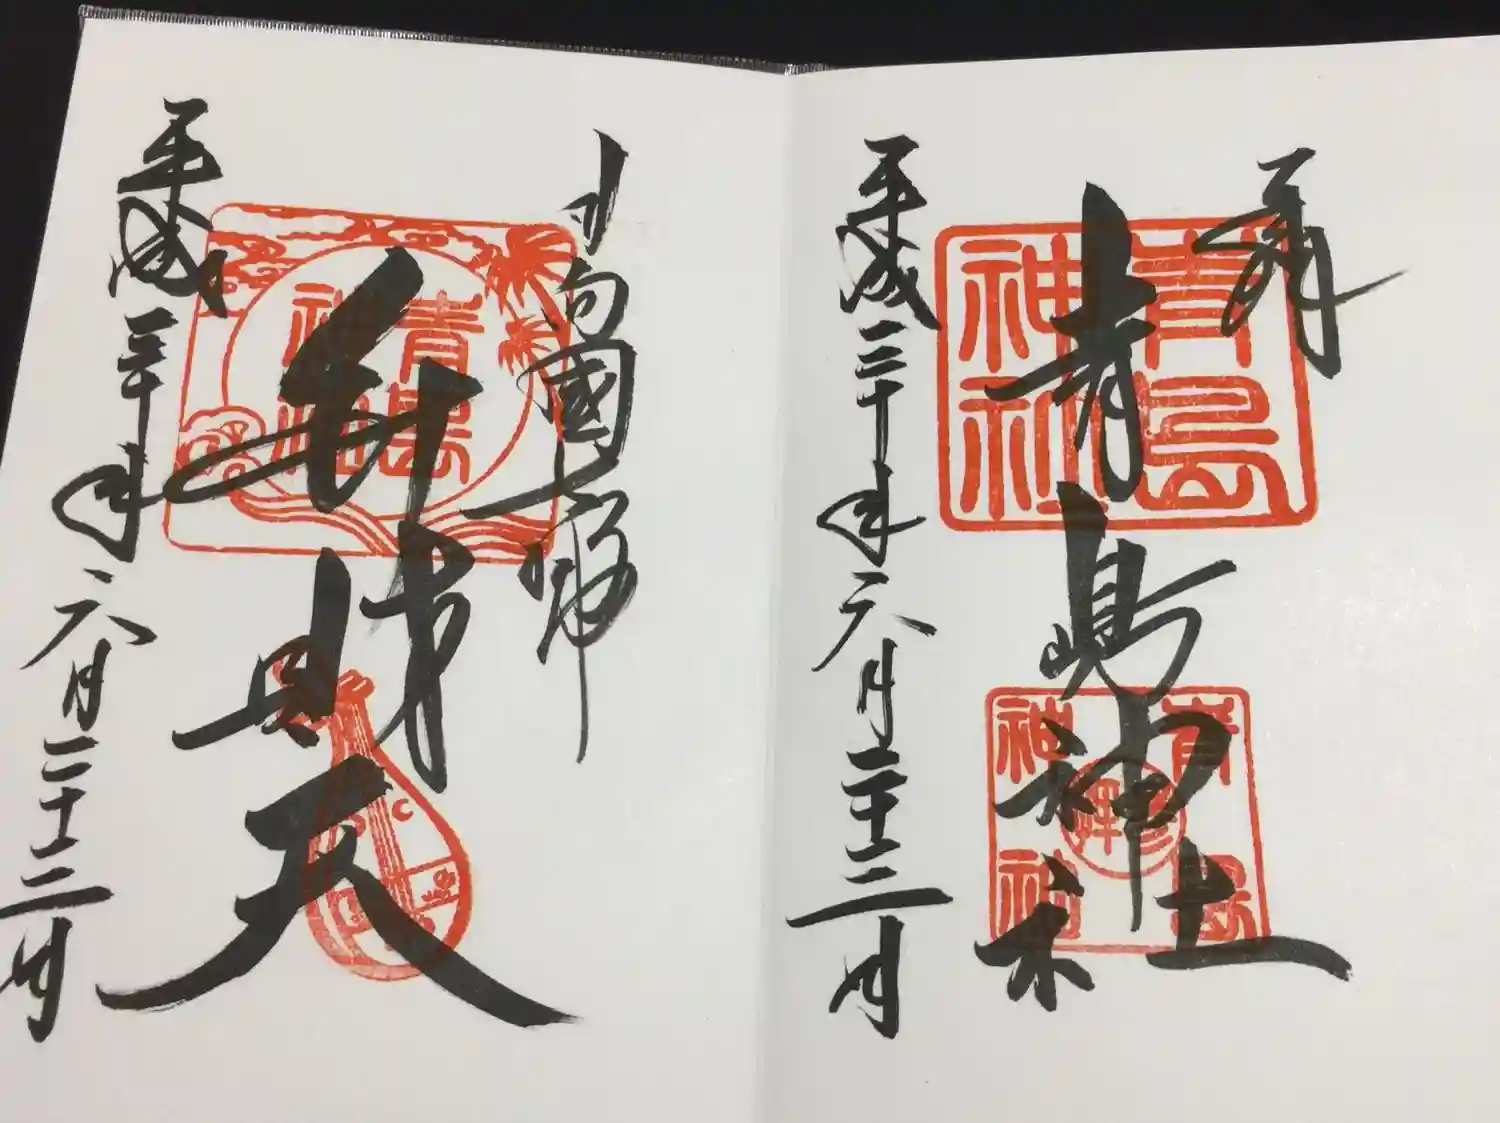 奉拝
青島神社
平成三十年六月二十三日
青島
神社
青島
神社
日向國七福神
弁財天
平成三十年六月二十三日
青島
神社